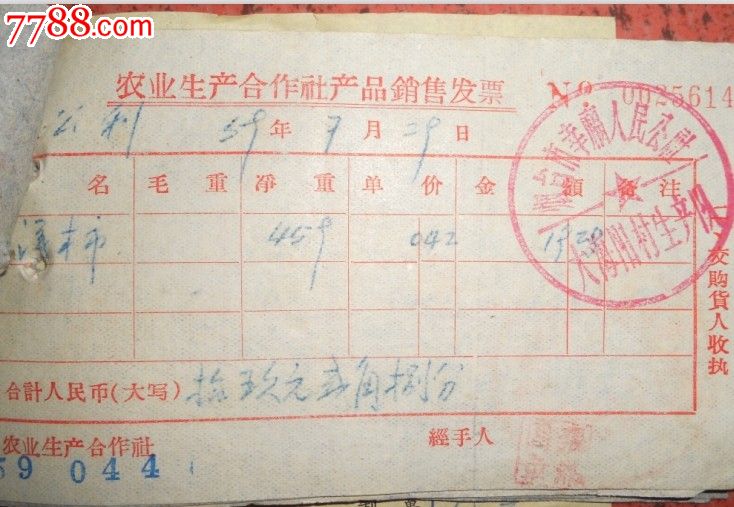 7788.com
中国收藏热线
农业生产合作社产品銷售发票
No 0025614
59 年 7 月 29 日
名 毛重 净重 单价 金額 备注
459 042 1928
合計人民币(大写) 拾玖元貳角捌分
交購貨人收执
农业生产合作社 經手人
59 044
人民公社
生产队